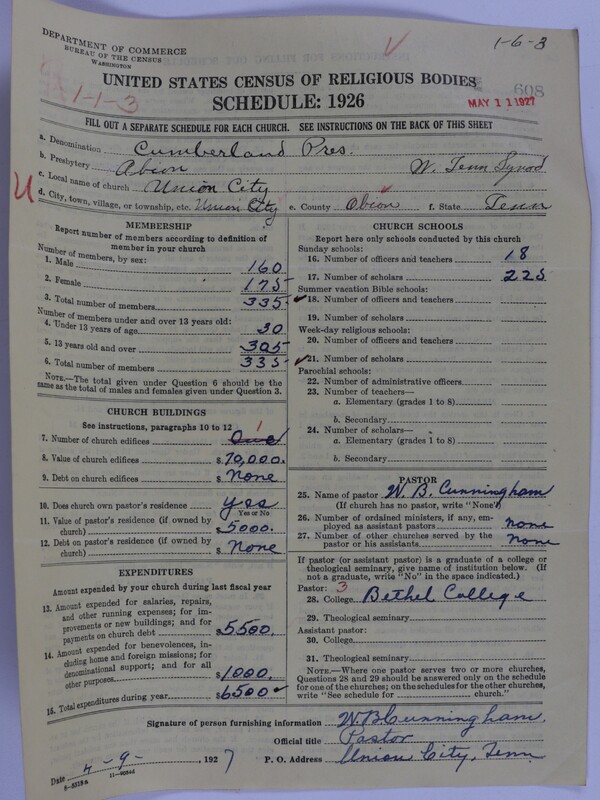 DEPARTMENT OF COMMERCE
BUREAU OF THE CENSUS
WASHINGTON
1-6-3
1-1-3
UNITED STATES CENSUS OF RELIGIOUS BODIES
SCHEDULE: 1926
608
MAY 11 1927
FILL OUT A SEPARATE SCHEDULE FOR EACH CHURCH. SEE INSTRUCTIONS ON THE BACK OF THIS SHEET
a. Denomination Cumberland Pres.
b. Presbytery Abion W. Tenn Synod
c. Local name of church Union City
U
d. City, town, village, or township, etc. Union City e. County Obion f. State Tenn
MEMBERSHIP
Report number of members according to definition of
member in your church
Number of members, by sex:
1. Male 160
2. Female 175
3. Total number of members 335
Number of members under and over 13 years old:
4. Under 13 years of age 30
5. 13 years old and over 305
6. Total number of members 335
NOTE.—The total given under Question 6 should be the
same as the total of males and females given under Question 3.
CHURCH BUILDINGS
See instructions, paragraphs 10 to 12
1
7. Number of church edifices One
8. Value of church edifices $70,000.
9. Debt on church edifices $None
10. Does church own pastor's residence yes
Yes or No
11. Value of pastor's residence (if owned by
church) $5000.
12. Debt on pastor's residence (if owned by
church) $None
EXPENDITURES
Amount expended by your church during last fiscal year
13. Amount expended for salaries, repairs,
and other running expenses; for im-
provements or new buildings; and for
payments on church debt $5500.
14. Amount expended for benevolences, in-
cluding home and foreign missions; for
denominational support; and for all
other purposes $1000.
15. Total expenditures during year $6500
CHURCH SCHOOLS
Report here only schools conducted by this church
Sunday schools:
16. Number of officers and teachers 18
17. Number of scholars 225
Summer vacation Bible schools:
18. Number of officers and teachers
19. Number of scholars
Week-day religious schools:
20. Number of officers and teachers
21. Number of scholars
Parochial schools:
22. Number of administrative officers
23. Number of teachers—
a. Elementary (grades 1 to 8)
b. Secondary
24. Number of scholars—
a. Elementary (grades 1 to 8)
b. Secondary
PASTOR
25. Name of pastor W. B. Cunningham
(If church has no pastor, write "None")
26. Number of ordained ministers, if any, em-
ployed as assistant pastors none
27. Number of other churches served by the
pastor or his assistants none
If pastor (or assistant pastor) is a graduate of a college or
theological seminary, give name of institution below. (If
not a graduate, write "No" in the space indicated.)
Pastor: 3
28. College Bethel College
29. Theological seminary
Assistant pastor:
30. College
31. Theological seminary
NOTE.—Where one pastor serves two or more churches,
Questions 28 and 29 should be answered only on the schedule
for one of the churches; on the schedules for the other churches,
write "See schedule for church."
Signature of person furnishing information W.B. Cunningham.
Official title Pastor
Date 4-9-, 1927 P. O. Address Union City, Tenn
8-5518a 11-9064d